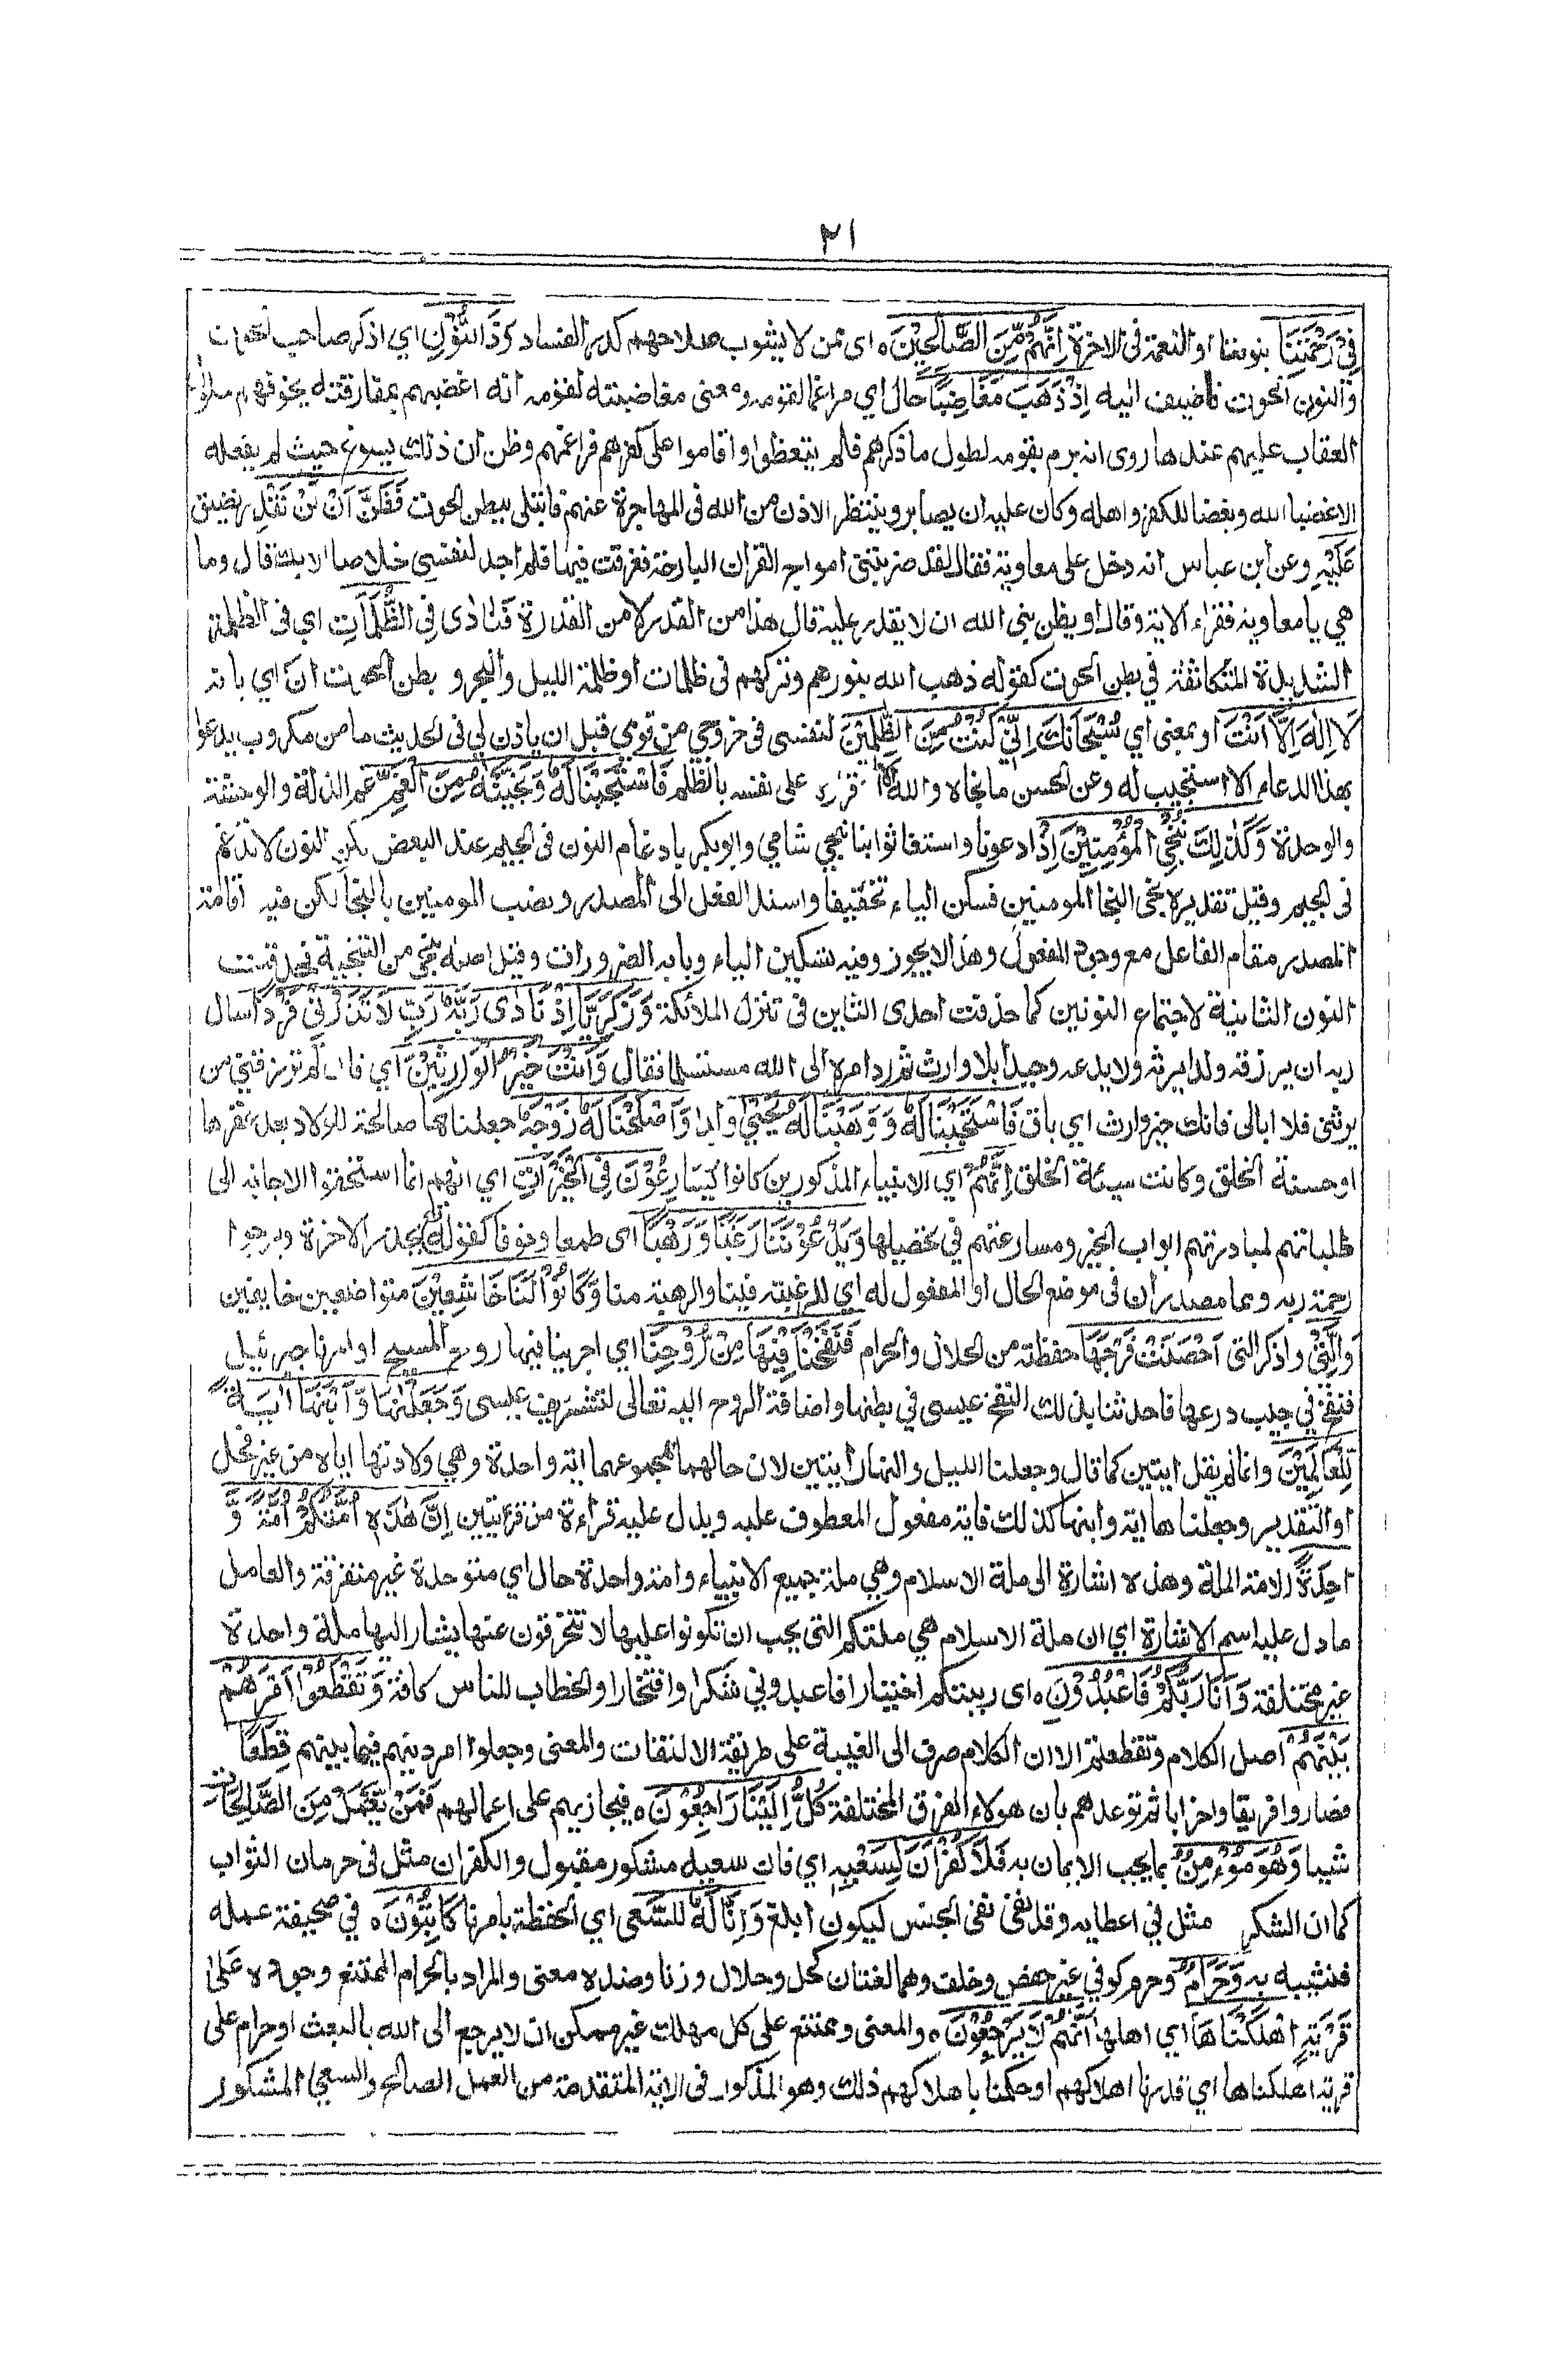 ٢١
فِيْ رَحْمَتِنَا بنوتنا او النعمة فى الاخرة اِنَّهُمْ مِّنَ الصَّالِحِيْنَ ه اى ممن لا يشوب صلاحهم كدر الفساد وَذَا النُّوْنِ اي اذكر صاحب الحوت
والنون الحوت فاضيف اليه اِذْ ذَهَبَ مُغَاضِبًا حال اي مراغما لقومه ومعنى مغاضبته لقومه انه اغضبهم بمفارقته بخوفهم حلول
العقاب عليهم عندها روى انه برم بقومه لطول ما ذكرهم فلم يتعظوا واقاموا على كفرهم فراغمهم وظن ان ذلك يسوغ حيث لم يفعله
الا غضبا لله وبغضا للكفر واهله وكان عليه ان يصابر وينتظر الاذن من الله فى المهاجرة عنهم فابتلى ببطن الحوت فَظَنَّ اَنْ لَنْ نَقْدِرَ نضيق
عَلَيْهِ وعن ابن عباس انه دخل على معاوية فقال لقد ضربتنى امواج القران البارحة فغرقت فيها فلم اجد لنفسى خلاصا الا بك قال وما
هي يا معاوية فقراء الاية وقال او يظن نبي الله ان لا يقدر عليه قال هذا من القدر لا من القدرة فَنَادٰى فِى الظُّلُمَاتِ اي فى الظلمة
الشديدة المتكاثفة في بطن الحوت كقوله ذهب الله بنورهم وتركهم فى ظلمات او ظلمة الليل والبحر و بطن الحوت ان اي بانه
لَا اِلٰهَ اِلَّا اَنْتَ او بمعنى اي سُبْحَانَكَ اِنِّيْ كُنْتُ مِنَ الظّٰلِمِيْنَ لنفسى فى خروجي من قومي قبل ان ياذن لي فى الحديث ما من مكروب يدعوا
بهذا الدعاء الا استجيب له وعن الحسن ما نجاه والله الا اقراره على نفسه بالظلم فَاسْتَجَبْنَا لَهُ وَنَجَّيْنٰهُ مِنَ الْغَمِّ غم الذلة والوحشة
والوحدة وَكَذٰلِكَ نُنْجِي الْمُؤْمِنِيْنَ اذا دعونا واستغاثوا بنا نجي شامي وابوبكر بادغام النون فى الجيم عند البعض لكن النون لا تدغم
فى الجيم وقيل تقديره نجى النجا المومنين فسكن الياء تخفيفا واسند الفعل الى المصدر ونصب المومنين بالنجا لكن فيه اقامة
المصدر مقام الفاعل مع وجود المفعول وهذا لا يجوز وفيه تسكين الياء وبابه الضرورات وقيل اصله ننجي من التنجية فحذفت
النون الثانية لاجتماع النونين كما حذفت احدى التاين فى تنزل الملائكة وَزَكَرِيَّا اِذْ نَادٰى رَبَّهُ رَبِّ لَا تَذَرْنِيْ فَرْدًا سال
ربه ان يرزقه ولدا يرثه ولا يدعه وحيدا بلا وارث ثم رد امره الى الله مستسلما فقال وَاَنْتَ خَيْرُ الْوَارِثِيْنَ اي فان لم ترزقني من
يرثنى فلا ابالى فانك خير وارث اي باق فَاسْتَجَبْنَا لَهُ وَوَهَبْنَا لَهُ يَحْيٰى ولدا وَاَصْلَحْنَا لَهُ زَوْجَهُ جعلناها صالحة للولاد بعد عقرها
او حسنة الخلق وكانت سيئة الخلق اِنَّهُمْ اي الانبياء المذكورين كانوا يُسَارِعُوْنَ فِى الْخَيْرَاتِ اي انهم انما استحقوا الاجابة الى
طلباتهم لمبادرتهم ابواب الخير ومسارعتهم في تحصيلها وَيَدْعُوْنَنَا رَغَبًا وَرَهَبًا اى طمعا وخوفا كقوله يحذر الاخرة ويرجوا
رحمة ربه وهما مصدران فى موضع الحال او المفعول له اي للرغبة فينا والرهبة منا وَكَانُوْا لَنَا خَاشِعِيْنَ متواضعين خايفين
وَالَّتِيْ واذكر التى اَحْصَنَتْ فَرْجَهَا حفظته من الحلال والحرام فَنَفَخْنَا فِيْهَا مِنْ رُّوْحِنَا اي اجرينا فيها روح المسيح او امرنا جبرئيل
فنفخ في جيب درعها فاحدثنا بذلك النفخ عيسى في بطنها واضافة الروح اليه تعالى لتشريف عيسى وَجَعَلْنٰهَا وَابْنَهَا اٰيَةً
لِّلْعَالَمِيْنَ وانما لم يقل ايتين كما قال وجعلنا الليل والنهار ايتين لان حالهما بمجموعهما اية واحدة وهي ولادتها اياه من غير فحل
او التقدير وجعلناها اية وابنها كذلك فاية مفعول المعطوف عليه ويدل عليه قراءة من قرا ايتين اِنَّ هٰذِهٖ اُمَّتُكُمْ اُمَّةً وَّ
احِدَةً الامة الملة وهذه اشارة الى ملة الاسلام وهي ملة جميع الانبياء وامة واحدة حال اي متوحدة غير متفرقة والعامل
ما دل عليه اسم الاشارة اي ان ملة الاسلام هي ملتكم التى يجب ان تكونوا عليها لا تنحرفون عنها يشار اليها ملة واحدة
غير مختلفة وَاَنَا رَبُّكُمْ فَاعْبُدُوْنِ ه اى ربيتكم اختيارا فاعبدوني شكرا وافتخارا والخطاب للناس كافة وَتَقَطَّعُوْا اَمْرَهُمْ
بَيْنَهُمْ اصل الكلام وتقطعتم الا ان الكلام صرف الى الغيبة على طريقة الالتفات والمعنى وجعلوا امر دينهم فيما بينهم قِطَعًا
فصاروا فريقا واحزابا ثم توعدهم بان هولاء الفرق المختلفة كُلٌّ اِلَيْنَا رَاجِعُوْنَ ه فيجازيهم على اعمالهم فَمَنْ يَّعْمَلْ مِنَ الصَّالِحَاتِ
شيبا وَهُوَ مُؤْمِنٌ بما يجب الايمان به فَلَا كُفْرَانَ لِسَعْيِهٖ اي فان سعيه مشكور مقبول والكفران مثل فى حرمان الثواب
كما ان الشكر مثل في اعطايه وقد نفى نفى الجنس ليكون ابلغ وَاِنَّا لَهُ للسعى اي الحفظة بامرنا كَاتِبُوْنَ ه في صحيفة عمله
فنثيبه به وَحَرَامٌ وحرم كوفي غير حفص وخلف وهما لغتان كحل وحلال وزنا وضده معنى والمراد بالحرام الممتنع وجوده عَلٰى
قَرْيَةٍ اَهْلَكْنَاهَا اي اهلها اَنَّهُمْ لَا يَرْجِعُوْنَ ه والمعنى وممتنع على كل مهلك غير ممكن ان لا يرجع الى الله بالبعث او حرام على
قرية اهلكناها اي قدرنا اهلاكهم او حكمنا باهلاكهم ذلك وهو المذكور فى الاية المتقدمة من العمل الصالح والسعي المشكور